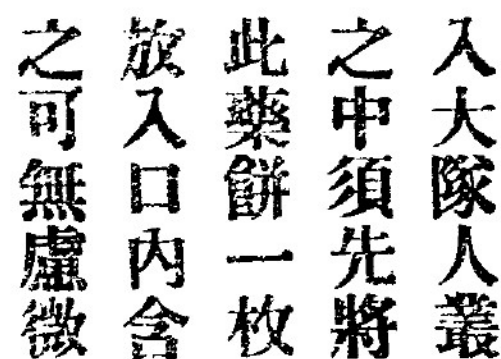 入大隊人叢
之中須先將
此藥餅一枚
放入口內含
之可無虛微